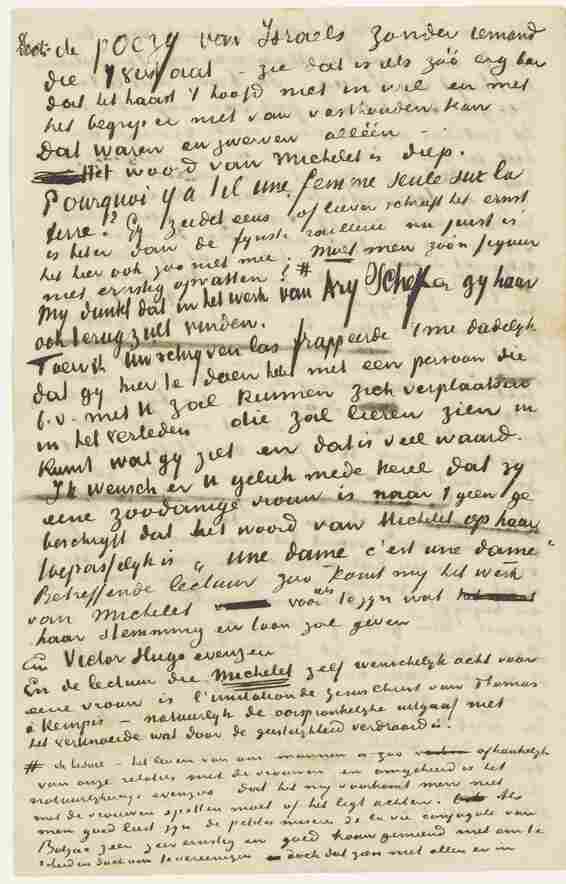 de poezy van Israels zonder iemand
die - zie dat is iets zóó erg
dat het haast 't hoofd niet in wil en met
het begrip er niet van vasthouden kan.
Dat waren en zwerven alléén -.
Het woord van Michelet is diep.
Pourquoi y a t il une femme seule sur la
terre? Gy zeidet eens of liever schreeft het ernst
is beter dan de fynste raillerie nu juist is
het hier ook zoo niet mee. Moet men zoo'n figuur
niet ernstig opvatten? #
My dunkt dat in het werk van Ary Scheffer gy haar
ook terug zult vinden.
Toen ik uw schryven las frappeerde 't me dadelyk
dat gy hier te doen hebt met een persoon die
b.v. met U zal kunnen zich verplaatsen
in het verleden die zal leeren zien in
kunst wat gy ziet en dat is veel waard.
Ik wensch er U geluk mede kerel dat zy
eene zoodanige vrouw is naar 't geen ge
beschryft dat het woord van Michelet op haar
toepasselyk is „une dame c'est une dame"
Betreffende lectuur zoo komt my het werk
van Michelet voor als te zyn wat
haar stemming en toon zal geven
En Victor Hugo evenzeer
En de lectuur die Michelet zelf wenschelyk acht voor
eene vrouw is l'imitation de Jesus Christ van Thomas
à Kempis – natuurlyk de oorspronkelyke uitgaaf niet
het verknoeide wat door de geestelykheid verdraaid is.
# de liefde – het leven van ons mannen is zoo afhankelyk
van onze relaties met de vrouwen en omgekeerd is het
natuurlyk evenzoo dat het my voorkomt men niet
met de vrouwen spotten moet of het ligt achten. Als
men goed leest zyn de petites misères de la vie conjugale van
Balzac zeer zeer ernstig en goed gemeend niet om te
scheiden doch om te vereenigen doch dat zoo niet allen er in